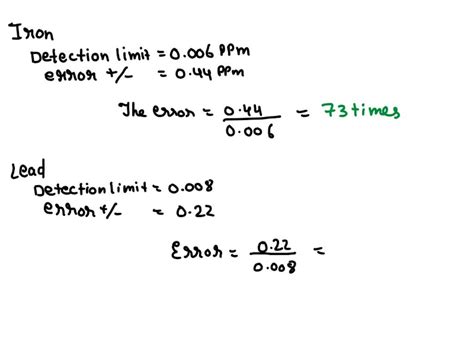 Iron
Detection limit = 0.006 PPm
error +/- = 0.44 PPm
The error = 0.44 / 0.006 = 73 times
Lead
Detection limit = 0.008
error +/- = 0.22
Error = 0.22 / 0.008 =